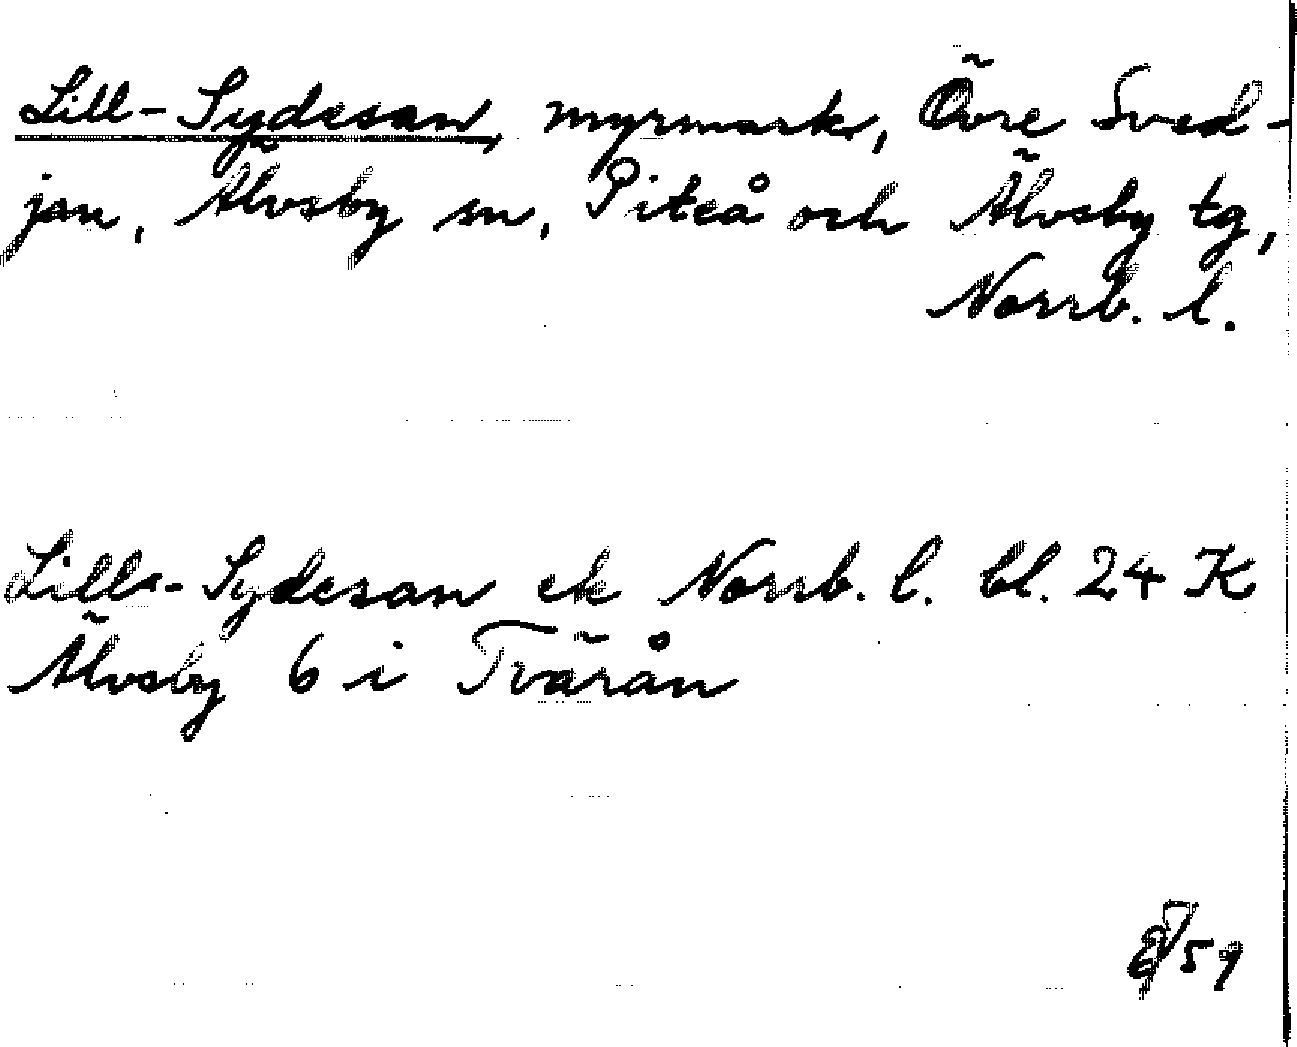 Lill-Sydesan, myrmark, Övre Sved-
jan, Älvsby sn, Piteå och Älvsby tg,
Norrb. l.
Lill-Sydesan ek Norrb. l. bl. 24 K
Älvsby 6 i Tvärån
59